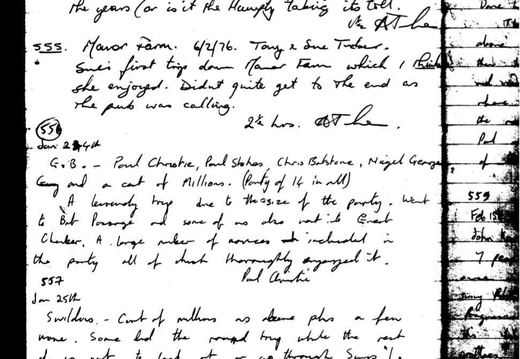 the years (or is it the Humpty taking its toll.
555. Manor Farm. 6/2/76. Tony & Sue Tucker.
Sue's first trip down Manor Farm which I think
she enjoyed. Didnt quite get to the end as
the pub was calling.
2½ hrs.
556
Jan 24th
G.B. - Paul Christie, Paul Stokes, Chris Batstone, Nigel
and a cast of Millions. (Party of 14 in all)
A leisurely trip due to the size of the party. Went
to Bat Passage and some of us also went to Great
Chamber. A large number of novices included in
the party all of which thoroughly enjoyed it.
Paul Christie
557
Jan 25th
Swildons - Cast of millions as above plus a few
more. Some did the round trip while the rest
above
where
the
Paul
of
559
Feb 15
John
7